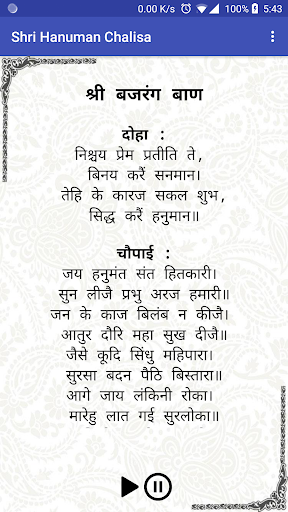 0.00 K/s 5:43
Shri Hanuman Chalisa
श्री बजरंग बाण
दोहा :
निश्चय प्रेम प्रतीति ते,
बिनय करैं सनमान।
तेहि के कारज सकल शुभ,
सिद्ध करैं हनुमान॥
चौपाई :
जय हनुमंत संत हितकारी।
सुन लीजै प्रभु अरज हमारी॥
जन के काज बिलंब न कीजै।
आतुर दौरि महा सुख दीजै॥
जैसे कूदि सिंधु महिपारा।
सुरसा बदन पैठि बिस्तारा॥
आगे जाय लंकिनी रोका।
मारेहु लात गई सुरलोका॥